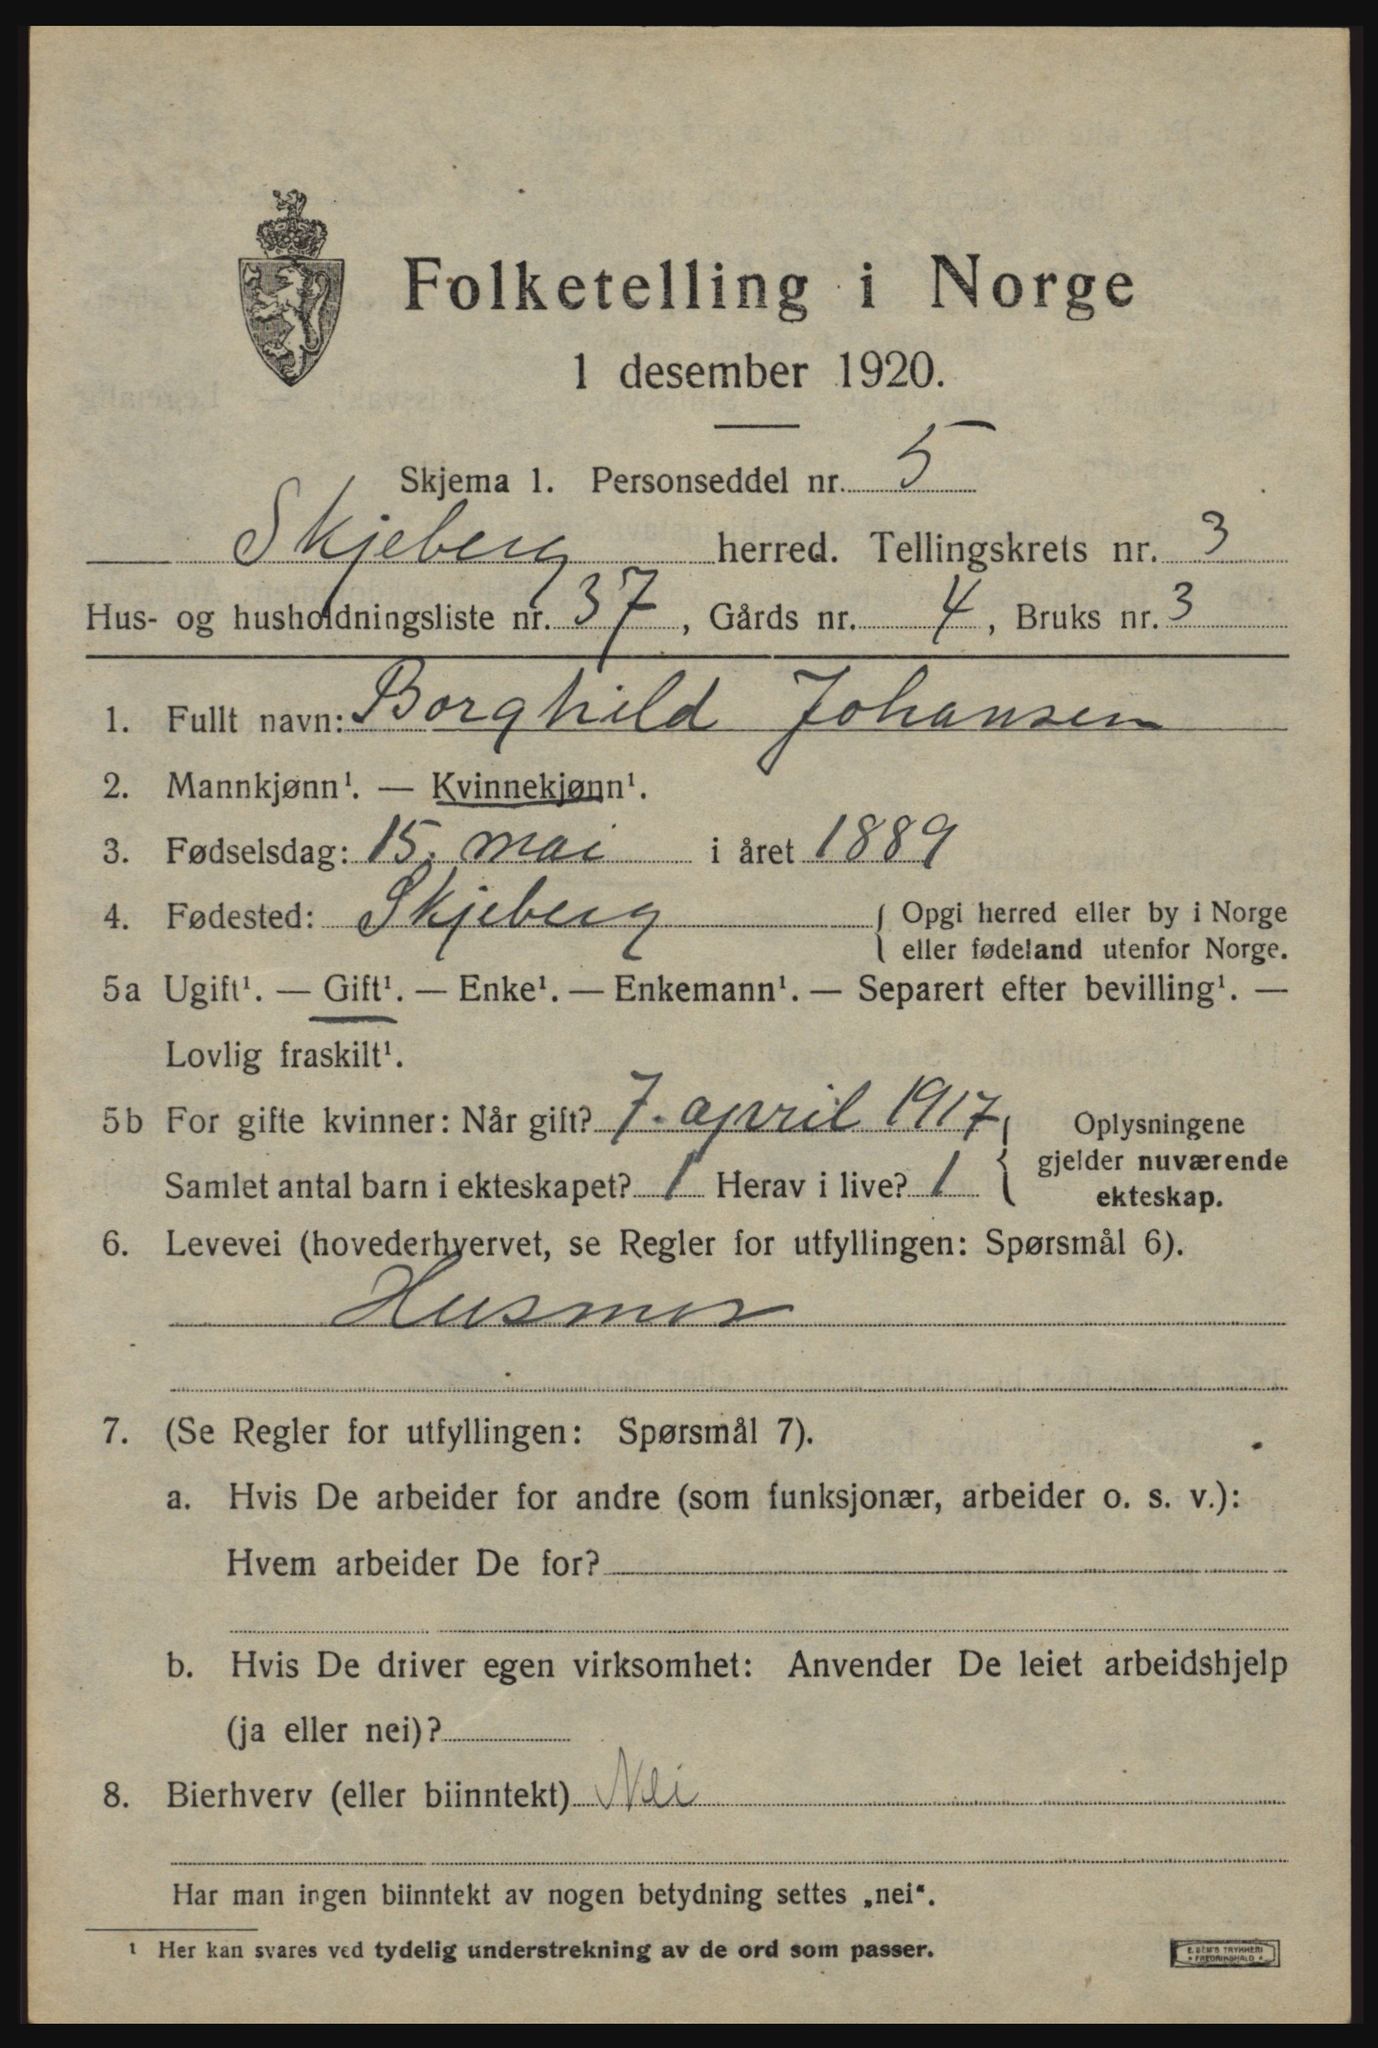 Folketelling i Norge
1 desember 1920.
Skjema 1. Personseddel nr. 5
Skjeberg herred. Tellingskrets nr. 3
Hus- og husholdningsliste nr. 37, Gårds nr. 4, Bruks nr. 3
1. Fullt navn: Borghild Johansen
2. Mannkjønn¹. — Kvinnekjønn¹.
3. Fødselsdag: 15. mai i året 1889
4. Fødested: Skjeberg { Opgi herred eller by i Norge
eller fødeland utenfor Norge.
5a Ugift¹. — Gift¹. — Enke¹. — Enkemann¹. — Separert efter bevilling¹. —
Lovlig fraskilt¹.
5b For gifte kvinner: Når gift? 7. april 1917 { Oplysningene
gjelder nuværende
Samlet antal barn i ekteskapet? 1 Herav i live? 1 ekteskap.
6. Levevei (hovederhvervet, se Regler for utfyllingen: Spørsmål 6).
Husmor
7. (Se Regler for utfyllingen: Spørsmål 7).
a. Hvis De arbeider for andre (som funksjonær, arbeider o. s. v.):
Hvem arbeider De for?
b. Hvis De driver egen virksomhet: Anvender De leiet arbeidshjelp
(ja eller nei)?
8. Bierhverv (eller biinntekt) Nei
Har man ingen biinntekt av nogen betydning settes „nei“.
¹ Her kan svares ved tydelig understrekning av de ord som passer.
E. SEM'S TRYKKERI
• FREDRIKSHALD •